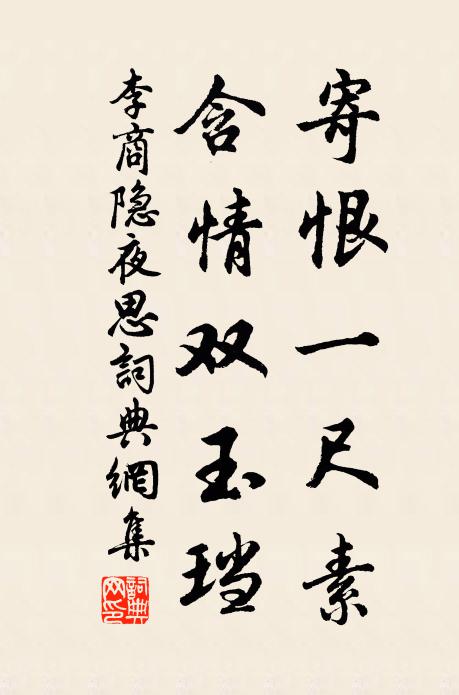 寄恨一尺素
含情双玉珰
李商隐夜思詞典網集